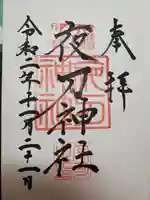 奉拝
夜刀神社
令和二年十一月二十一日